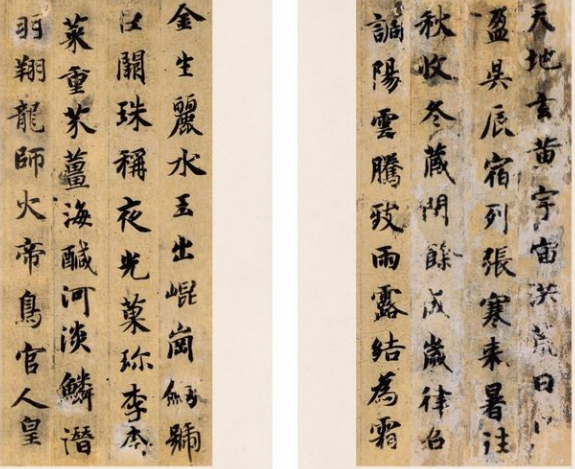 天地玄黃宇宙洪荒日
盈昃辰宿列張寒来暑往
秋收冬藏閏餘成歲律召
調陽雲騰致雨露結為霜
金生麗水玉出崐崗劍號
巨闕珠稱夜光菓珍李柰
菜重芥薑海鹹河淡鱗潛
羽翔龍師火帝鳥官人皇